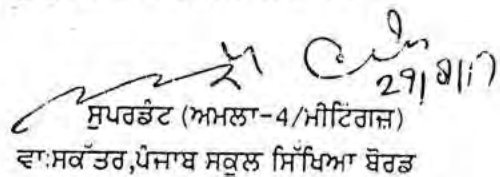 29/8/17
ਸੁਪਰਡੰਟ (ਅਮਲਾ-4/ਮੀਟਿੰਗਜ਼)
ਵਾ:ਸਕੱਤਰ,ਪੰਜਾਬ ਸਕੂਲ ਸਿੱਖਿਆ ਬੋਰਡ